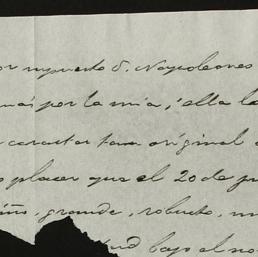 or supuesto S. Napoleones
más por la mia, ella la
caracter tan original
placer que el 20 de
niño, grande, robusto, un
bajo el no